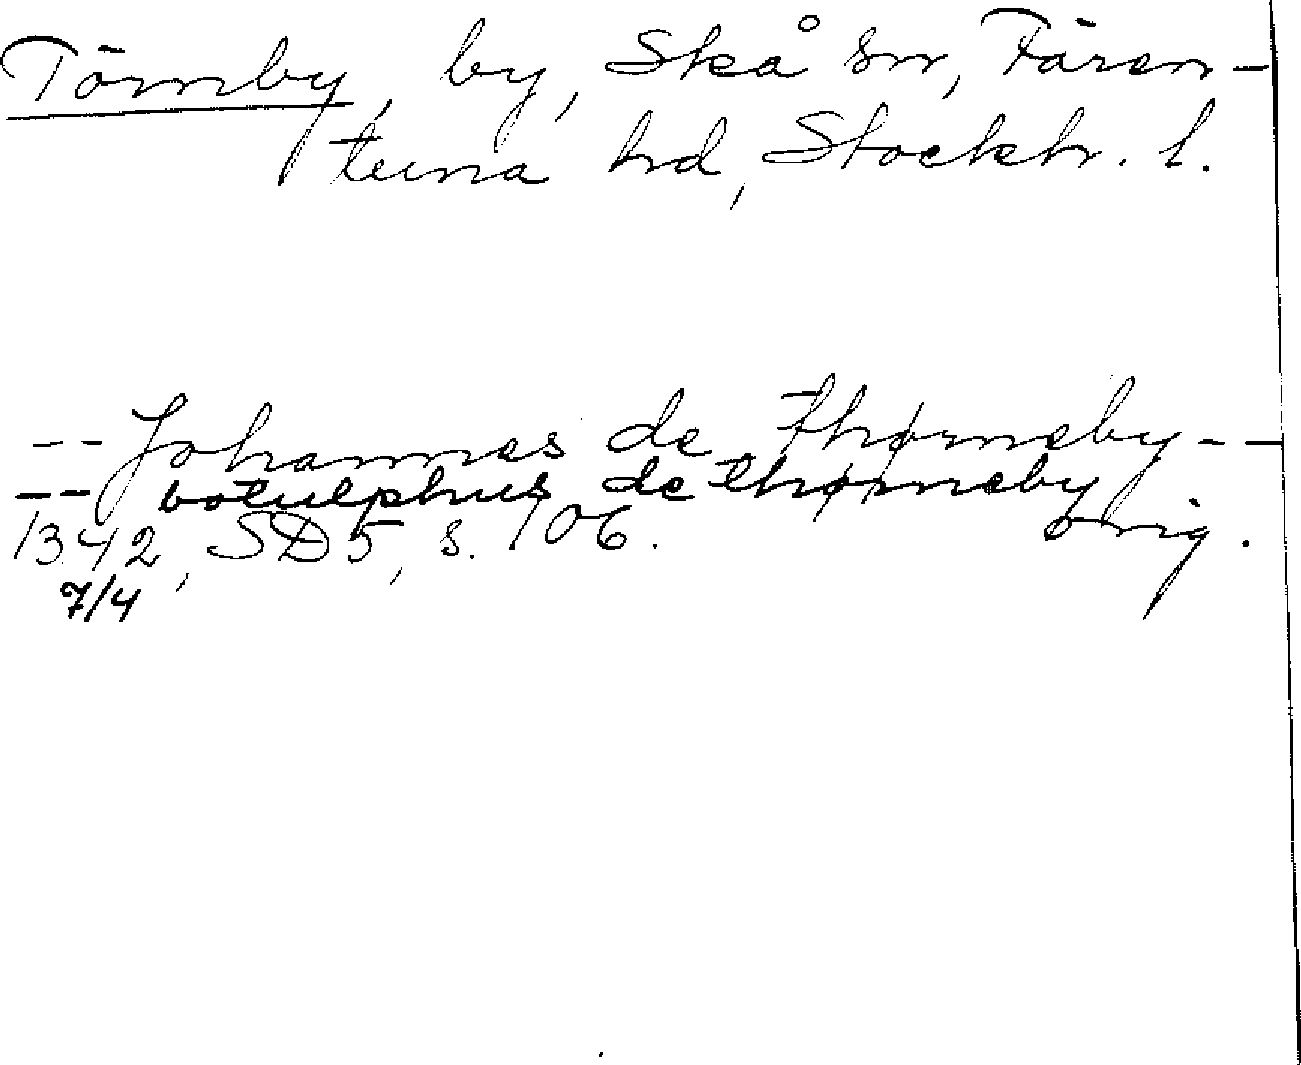 Törnby, by, Skå sn, Fären-
tuna hd, Stockh. l.
-- Johannes de thørneby --
-- botulphus de thørneby
1342, SD 5, s. 106. orig.
7/4